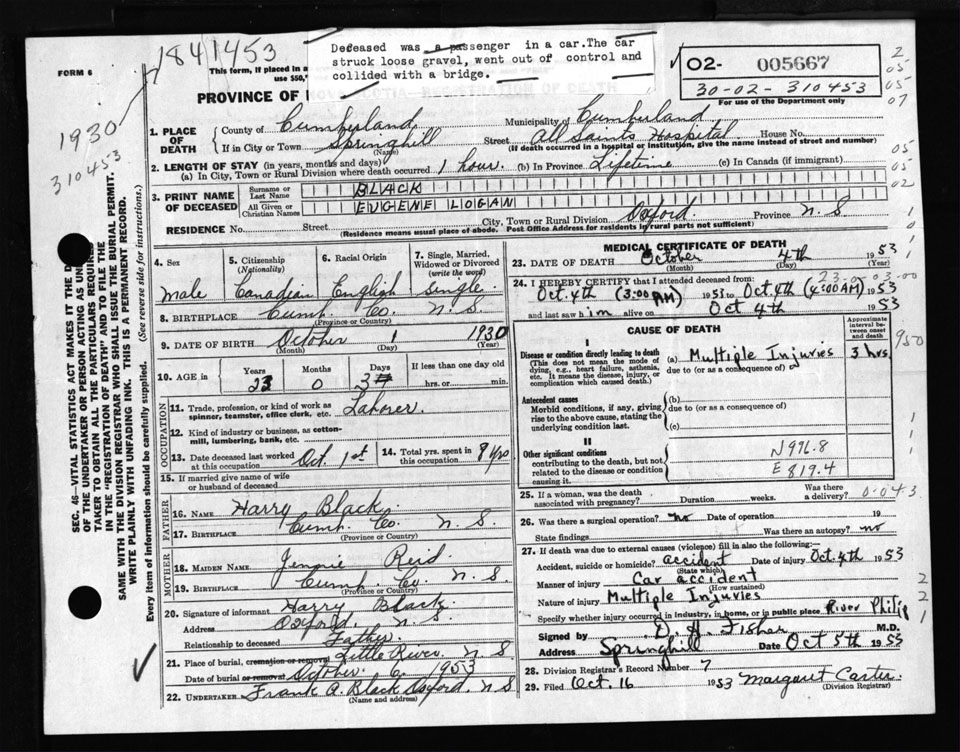 1841453
Deceased was a passenger in a car.The car
struck loose gravel, went out of control and
collided with a bridge.
FORM 6
This form, if placed in a
use $50,
PROVINCE OF
NOVA SCOTIA—REGISTRATION OF DEATH
02- 005667
30-02-310453
For use of the Department only
2
05
05
07
1930
310453
05
05
02
1. PLACE OF DEATH
County of Cumberland Municipality of Cumberland
If in City or Town Springhill Street All Saints Hospital House No.
(Name) (If death occurred in a hospital or institution, give the name instead of street and number)
2. LENGTH OF STAY (in years, months and days)
(a) In City, Town or Rural Division where death occurred 1 hour. (b) In Province Lifetime (c) In Canada (if immigrant)
3. PRINT NAME OF DECEASED
Surname or Last Name BLACK
All Given or Christian Names EUGENE LOGAN
RESIDENCE No. Street City, Town or Rural Division Oxford Province N.S.
(Residence means usual place of abode. Post Office Address for residents in rural parts not sufficient)
SEC. 46—VITAL STATISTICS ACT MAKES IT THE D
OF THE UNDERTAKER OR PERSON ACTING AS UN
TAKER TO OBTAIN ALL THE PARTICULARS REQUIRE
IN THE "REGISTRATION OF DEATH" AND TO FILE THE
SAME WITH THE DIVISION REGISTRAR WHO SHALL ISSUE THE BURIAL PERMIT.
WRITE PLAINLY WITH UNFADING INK. THIS IS A PERMANENT RECORD.
Every item of information should be carefully supplied. (See reverse side for instructions.)
4. Sex
Male
5. Citizenship (Nationality)
Canadian
6. Racial Origin
English
7. Single, Married, Widowed or Divorced (write the word)
Single
8. BIRTHPLACE Cumb. Co. N.S.
(Province or Country)
9. DATE OF BIRTH October 1 1930
(Month) (Day) (Year)
10. AGE in Years Months Days If less than one day old
23 0 3 hrs. or min.
OCCUPATION
11. Trade, profession, or kind of work as spinner, teamster, office clerk, etc. Laborer.
12. Kind of industry or business, as cotton-mill, lumbering, bank, etc.
13. Date deceased last worked at this occupation Oct. 1st 14. Total yrs. spent in this occupation 8 yrs
15. If married give name of wife or husband of deceased
FATHER
16. Name Harry Black.
17. BIRTHPLACE Cumb. Co. N.S.
(Province or Country)
MOTHER
18. MAIDEN NAME Jennie Reid.
19. BIRTHPLACE Cumb. Co. N.S.
(Province or Country)
20. Signature of informant Harry Black
Address Oxford, N.S.
Relationship to deceased Father.
21. Place of burial, cremation or removal Little River. N.S
Date of burial or removal October 6 1953
22. UNDERTAKER Frank A. Black Oxford, N.S
(Name and address)
MEDICAL CERTIFICATE OF DEATH
23. DATE OF DEATH October 4th 1953
(Month) (Day) (Year)
24. I HEREBY CERTIFY that I attended deceased from: 23-0 03-00
Oct. 4th (3:00 AM) 1953 to Oct 4th (4:00 AM) 1953
and last saw him alive on Oct 4th 1953
CAUSE OF DEATH
Approximate interval between onset and death
950
I
Disease or condition directly leading to death (a) Multiple Injuries 3 hrs.
(This does not mean the mode of dying, e.g., heart failure, asthenia, etc. It means the disease, injury, or complication which caused death.)
due to (or as a consequence of)
Antecedent causes
Morbid conditions, if any, giving rise to the above cause, stating the underlying condition last.
(b)
due to (or as a consequence of)
(c)
II
Other significant conditions
contributing to the death, but not related to the disease or condition causing it.
N996.8
E819.4
25. If a woman, was the death associated with pregnancy? Duration weeks. Was there a delivery? 0-043
26. Was there a surgical operation? no Date of operation 19
State findings Was there an autopsy? no
27. If death was due to external causes (violence) fill in also the following:—
Accident, suicide or homicide? accident Date of injury Oct. 4th 1953
(State which)
Manner of injury Car accident
(How sustained)
Nature of injury Multiple Injuries
Specify whether injury occurred in industry, in home, or in public place River Philip
Signed by D. A. Fisher M.D.
Address Springhill Date Oct 5th 1953
28. Division Registrar's Record Number 7
29. Filed Oct. 16 1953 Margaret Carter
(Division Registrar)